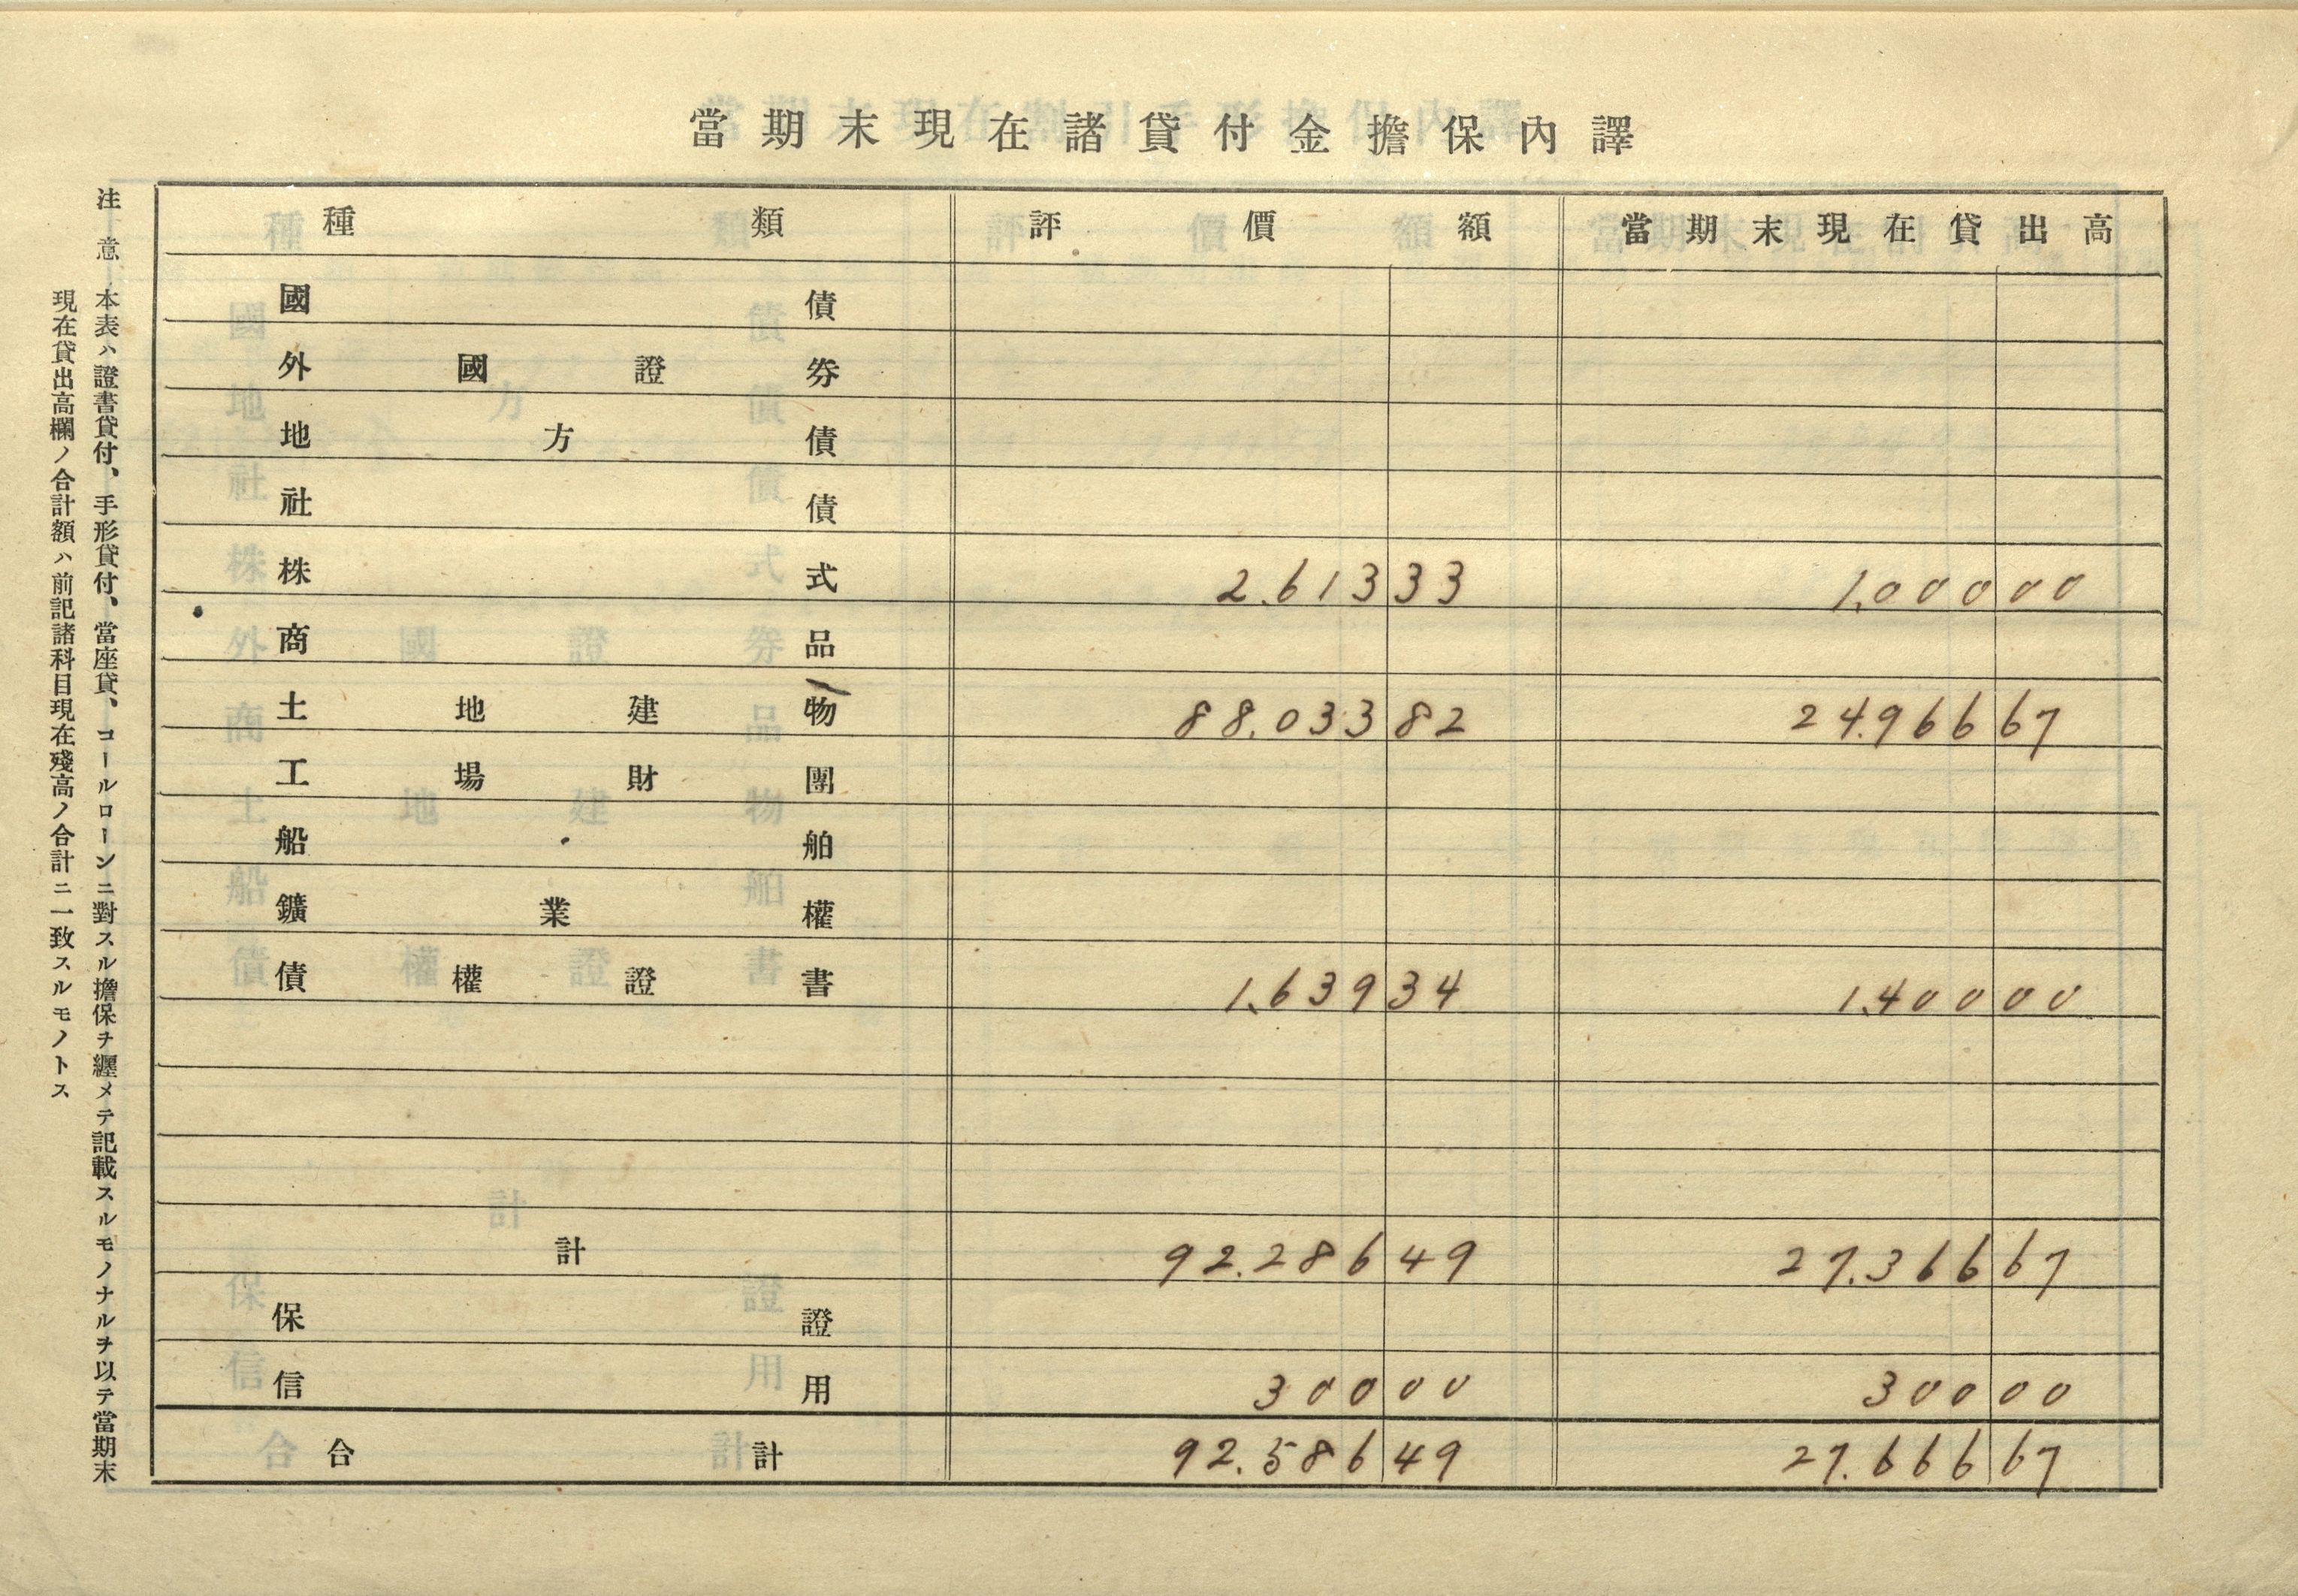 當期末現在諸貸付金擔保內譯
種類 評價額 當期末現在貸出高
國債
外國證券
地方債
社債
株式 2.613 33 1.000 00
商品
土地建物 88.033 82 24.966 67
工場財團
船舶
鑛業權
債權證書 1.639 34 1.400 00
計 92.286 49 27.366 67
保證
信用 300 00 300 00
合計 92.586 49 27.666 67
注意 本表ハ證書貸付、手形貸付、當座貸、コールローンニ對スル擔保ヲ纒メテ記載スルモノナルヲ以テ當期末
現在貸出高欄ノ合計額ハ前記諸科目現在殘高ノ合計ニ一致スルモノトス